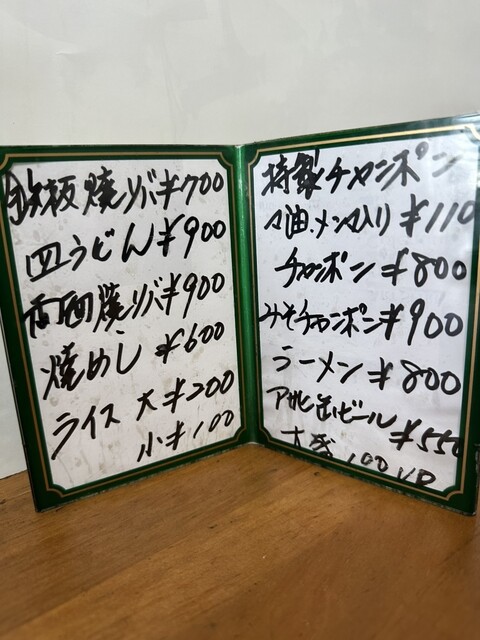 鉄板焼ソバ ¥700
皿うどん ¥900
両面焼ソバ ¥900
焼めし ¥600
ライス 大 ¥200
小 ¥100
特製チャンポン
マー油.メンマ入り ¥110
チャンポン ¥800
みそチャンポン ¥900
ラーメン ¥800
アサヒ缶ビール ¥550
大盛100UP